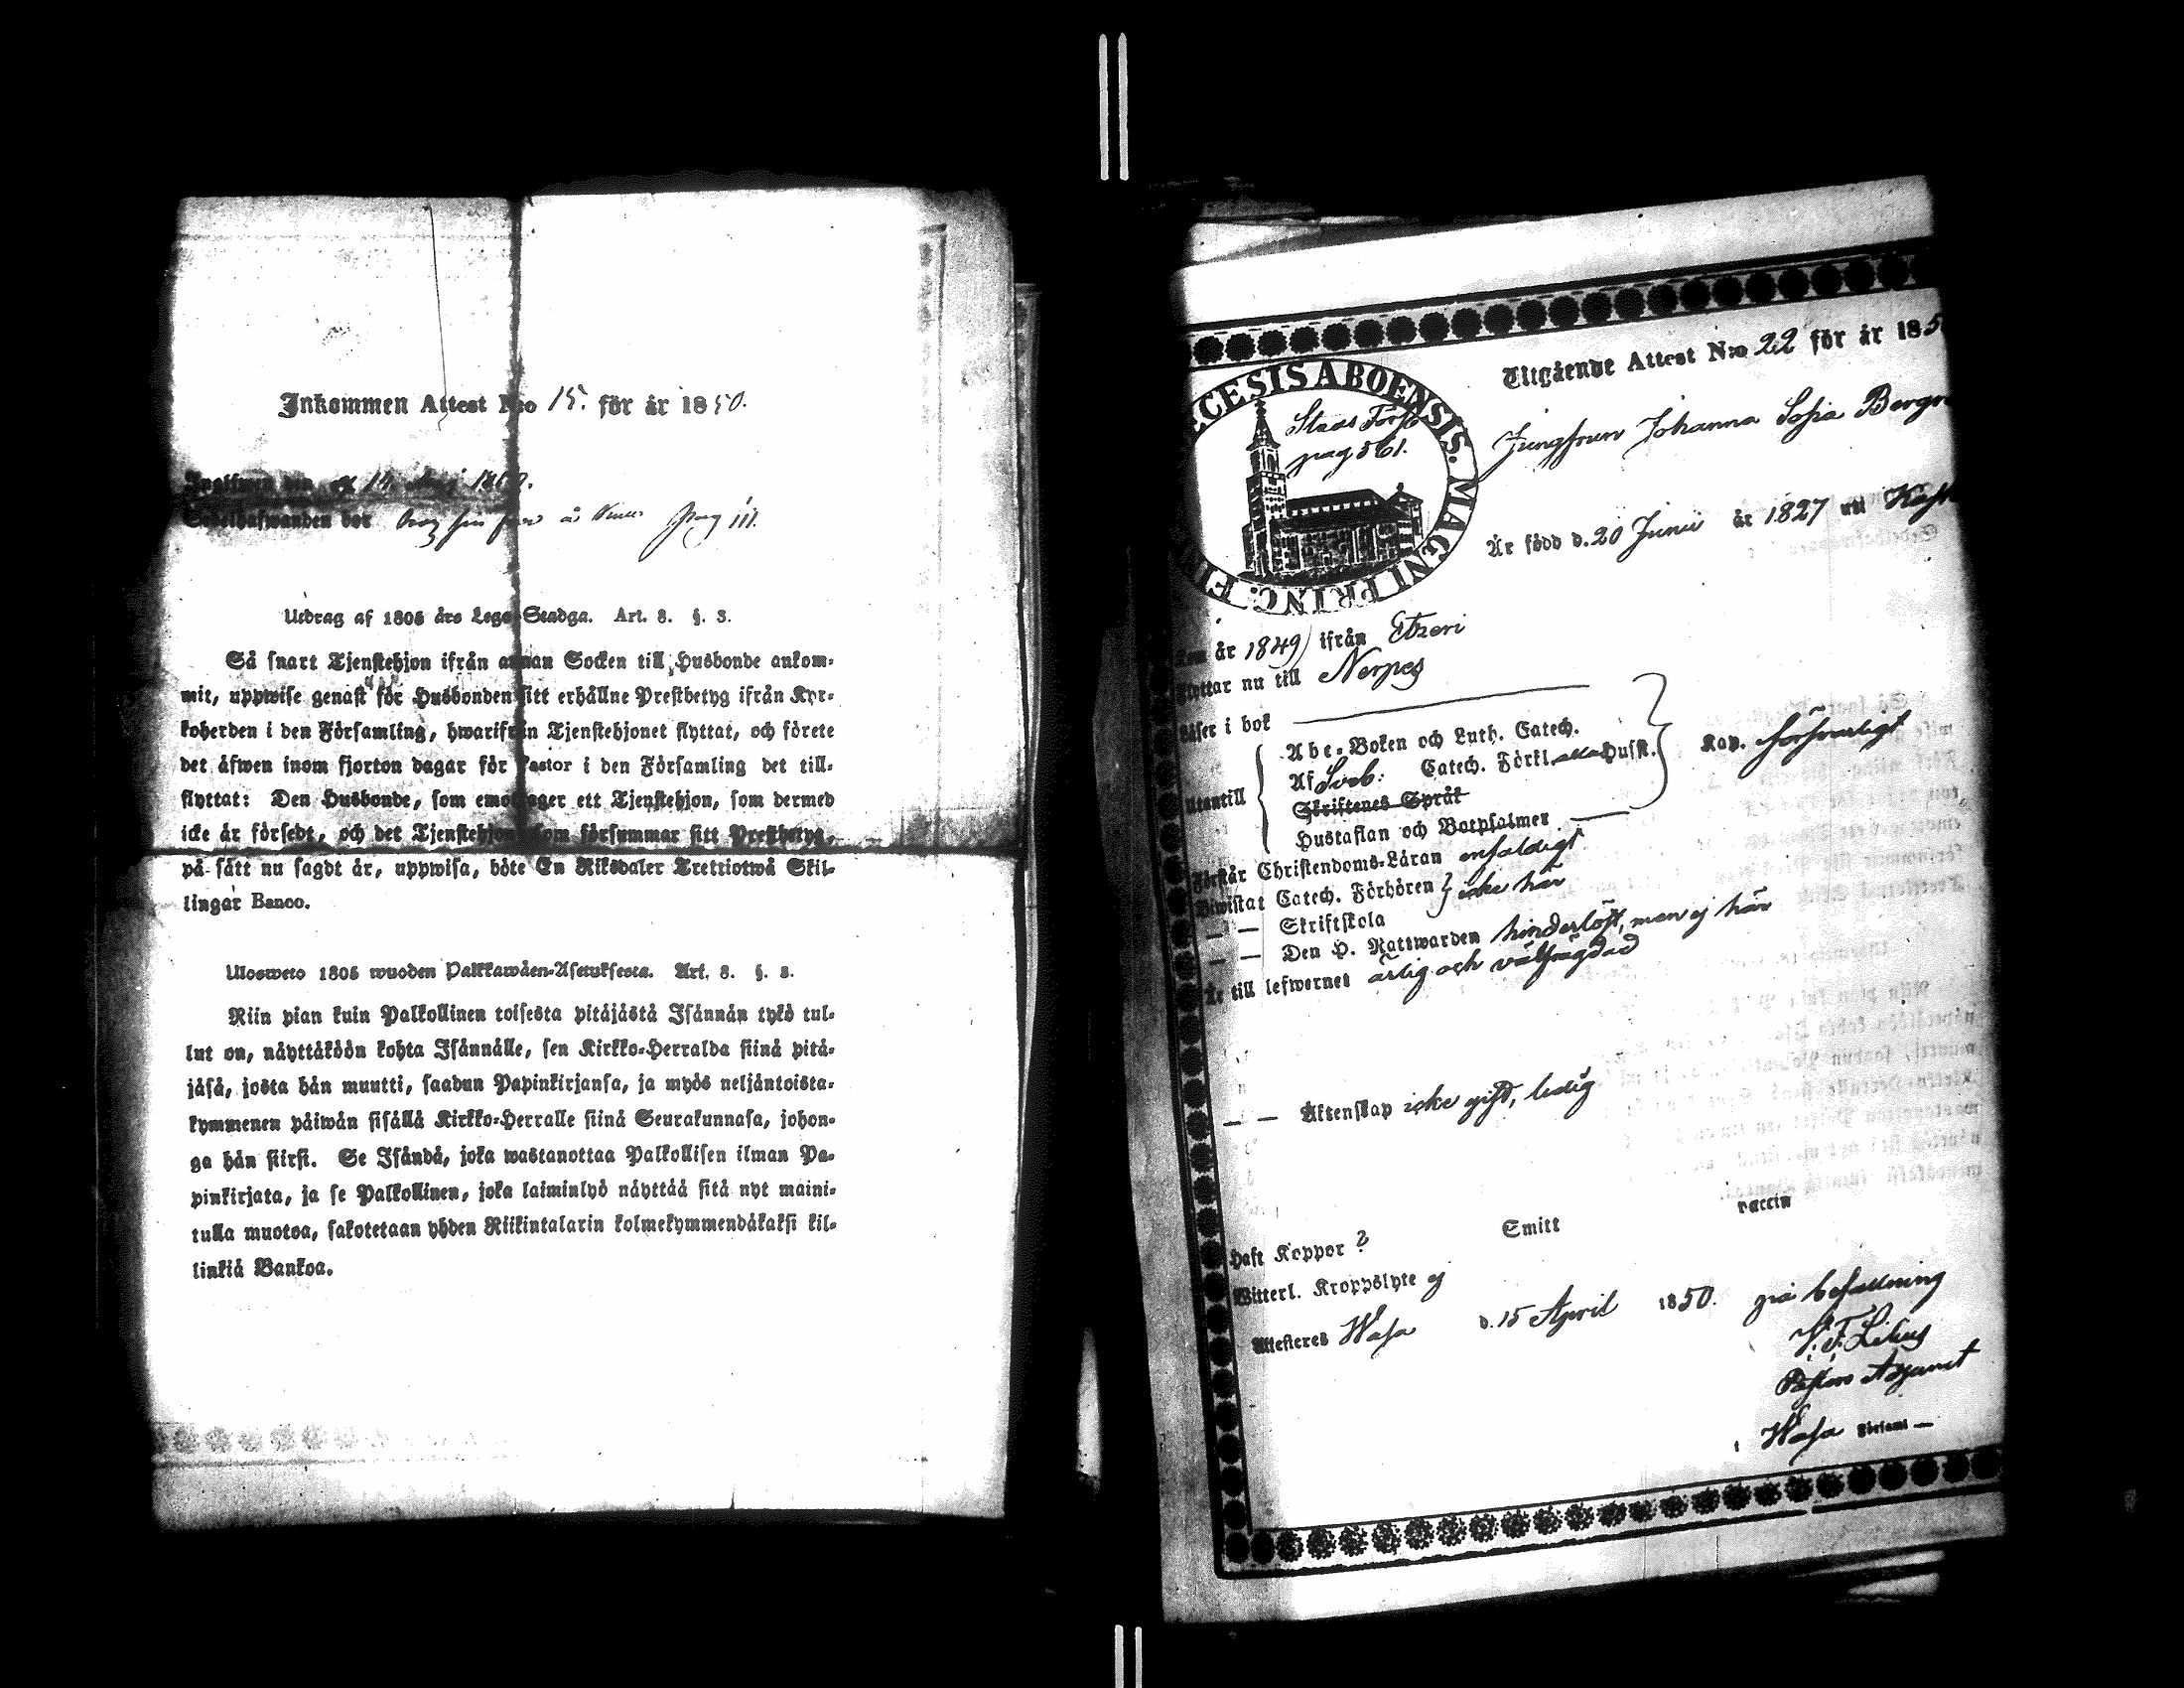 Inkommen Attest N:o 15. för år 1850.
Inalswen den 1850.
bos sin å pag 111.
Utdrag af 1805 års Lego-Stadga. Art. 8. §. 3.
Så snart Tjenstehjon ifrån annan Socken till Husbonde ankom-
mit, uppwise genast för Husbonden sitt erhållne Prestbetyg ifrån Kyr-
koherden i den Församling, hwarifrån Tjenstehjonet flyttat, och förete
det äfwen inom fjorton dagar för Pastor i den Församling det till-
flyttat: Den Husbonde, som emottager ett Tjenstehjon, som dermed
icke är försedt, och det Tjenstehjon som försummar sitt Prestbetyg,
på sätt nu sagdt är, uppwisa, böte En Riksdaler Trettiotwå Skil-
lingar Banco.
Ulosweto 1805 wuoden Palkkawäen-Asetuksesta. Art. 8. §. 3.
Niin pian kuin Palkollinen toisesta pitäjästä Isännän tykö tul-
lut on, näyttäköön kohta Isännälle, sen Kirkko-Herralda siinä pitä-
jäsä, josta hän muutti, saadun Papinkirjansa, ja myös neljäntoista-
kymmenen päiwän sisällä Kirkko-Herralle siinä Seurakunnasa, johon-
ga hän siirsi. Se Isändä, joka wastanottaa Palkollisen ilman Pa-
pinkirjata, ja se Palkollinen, joka laiminlyö näyttää sitä nyt maini-
tulla muotoa, sakotetaan yhden Riikintalarin kolmekymmendäkaksi kil-
linkiä Bankoa.
CESIS ABOENSIS. MAGNI PRINC. F
Stads Förs.
pag 561.
Utgående Attest N:o 22 för år 185
Jungfrun Johanna Sofia Bergr
Är född d. 20 Junii år 1827 uti
Kom år 1849 ifrån Etseri
Flyttar nu till Nerpes
Läser i bok
Utantill
Abc-Boken och Luth. Catech.
Af Sveb: Catech. Förkl. Husfl.
Skriftenes Språk
Hustaflan och Botpsalmer
Kap. försvarligt
Förstår Christendoms-Läran enfaldigt
Biwistat Catech. Förhören } icke här
— — Skriftskola
— — Den H. Nattwarden hinderlöst, men ej här
Är till lefwernet ärlig och välfrägdad
— — Äktenskap icke gift, ledig
Haft Koppor ? Smitt vaccin
Witterl. Kroppslyte ej
Attesteres Wasa d. 15 April 1850. på befallning
Pastors Adjunct
i Wasa Församl —